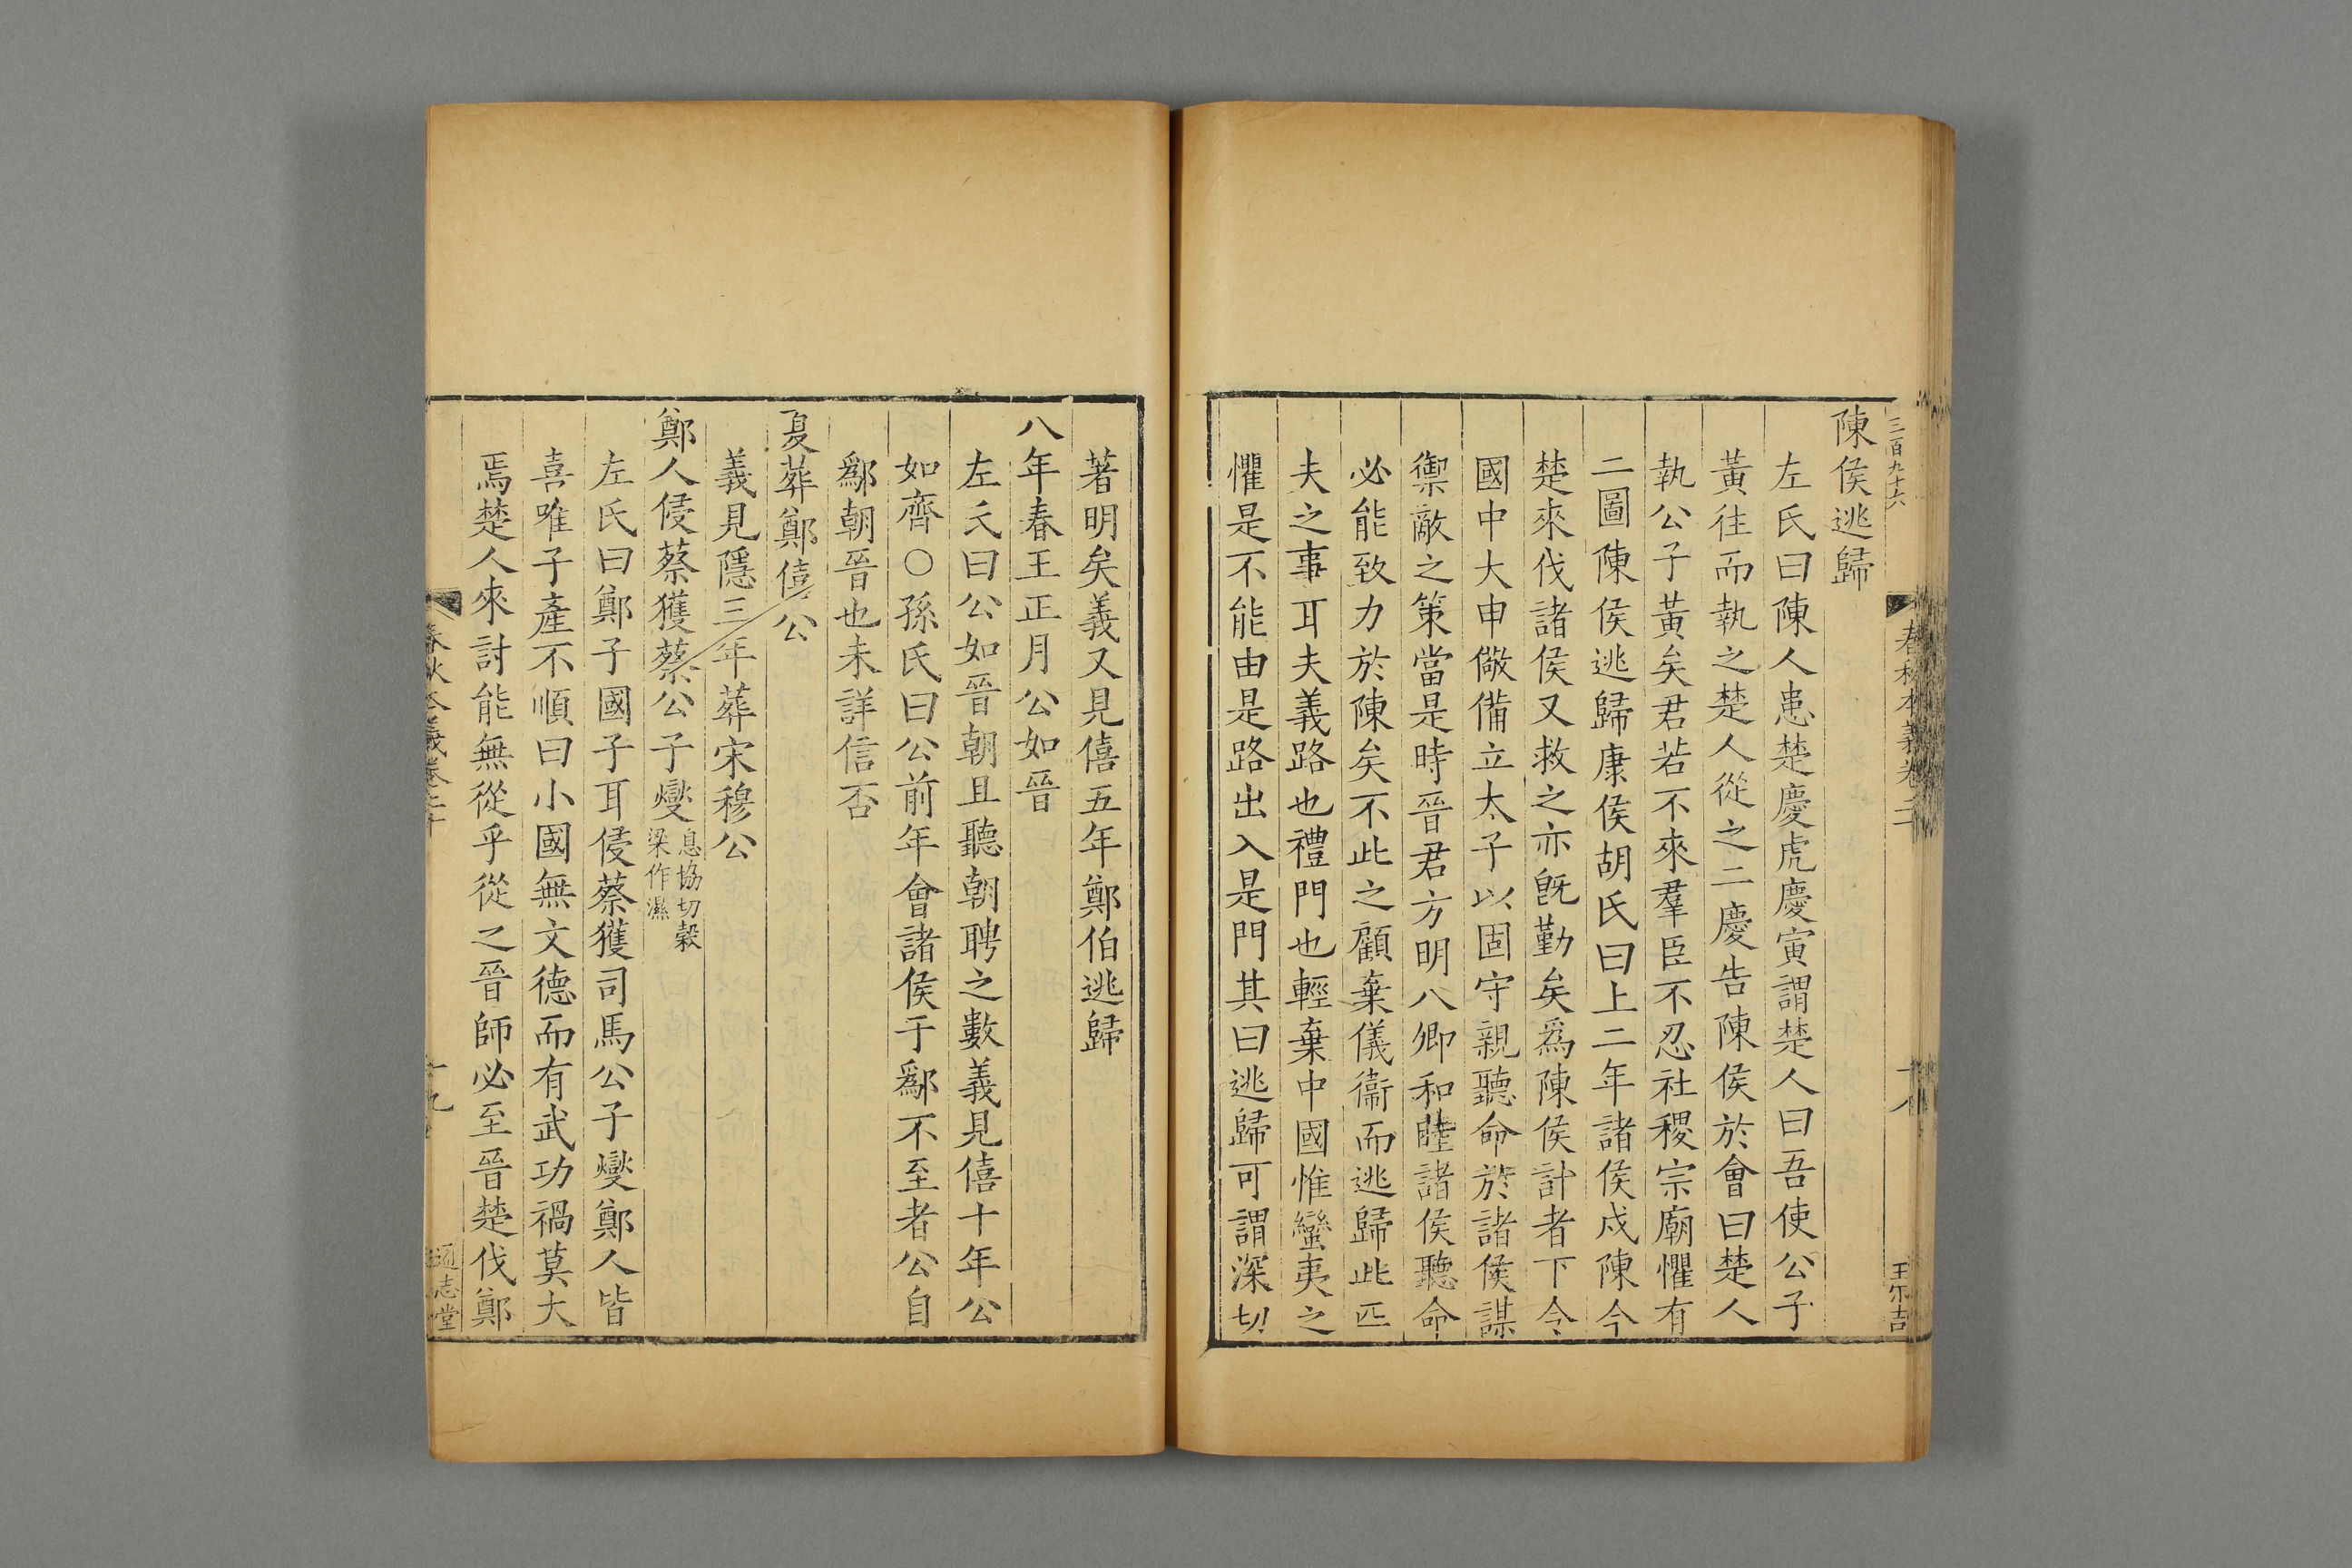 三百九十六
春秋本義卷二
十八
王尔吉
陳侯逃歸
左氏曰陳人患楚慶虎慶寅謂楚人曰吾使公子
黃往而執之楚人從之二慶告陳侯於會曰楚人
執公子黃矣君若不來羣臣不忍社稷宗廟懼有
二圖陳侯逃歸康侯胡氏曰上二年諸侯戍陳今
楚來伐諸侯又救之亦旣勤矣爲陳侯計者下令
國中大申儆備立太子以固守親聽命於諸侯謀
禦敵之策當是時晉君方明八卿和睦諸侯聽命
必能致力於陳矣不此之顧棄儀衞而逃歸此匹
夫之事耳夫義路也禮門也輕棄中國惟蠻夷之
懼是不能由是路出入是門其曰逃歸可謂深切
著明矣義又見僖五年鄭伯逃歸
八年春王正月公如晉
左氏曰公如晉朝且聽朝聘之數義見僖十年公
如齊○孫氏曰公前年會諸侯于鄬不至者公自
鄬朝晉也未詳信否
夏葬鄭僖公
義見隱三年葬宋穆公
鄭人侵蔡獲蔡公子燮息協切穀
梁作濕
左氏曰鄭子國子耳侵蔡獲司馬公子燮鄭人皆
喜唯子產不順曰小國無文德而有武功禍莫大
焉楚人來討能無從乎從之晉師必至晉楚伐鄭
春秋本義卷二十
十九
通志堂